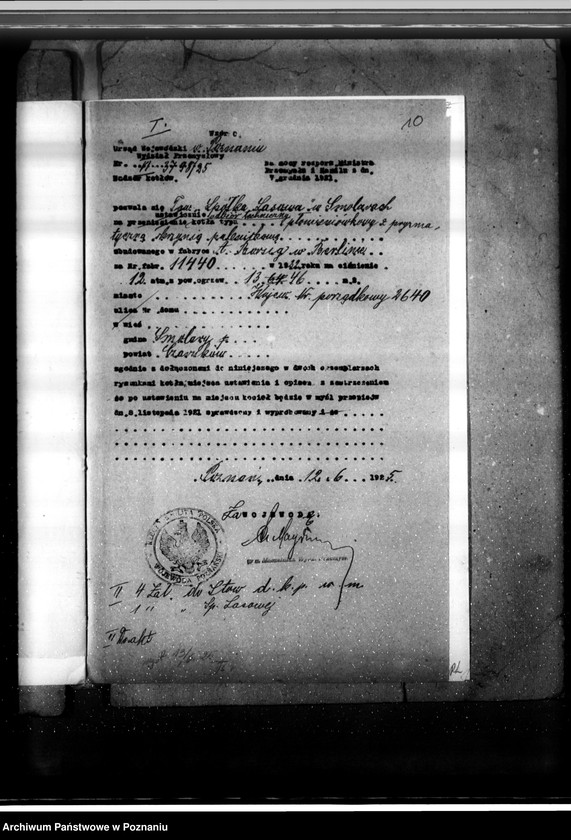 I.
10
Wzór C.
Urząd Wojewódzki w Poznaniu
Wydział Przemysłowy
Nr.
Dozór kotłów.
Na mocy rozporz. Ministra
Przemysłu i Handlu z dn.
7 grudnia 1921.
pozwala się Tow. "Spółka Lasowa" w Smolarach
ustawienie
na przeniesienie kotła typu płomieniówkowy z
paleniskową
zbudowanego w fabryce A. Borsig w Berlinie
za Nr. fabr. 11440 w 18 roku na ciśnienie
12 atm. o pow. ogrzew. 13.46 m.2.
miasto Nr. porządkowy 2640
ulica Nr domu
w wieś
gmina Smolary
powiat Czarnków
zgodnie z dołączonemi do niniejszego w dwóch egzemplarzach
rysunkami kotła, miejsca ustawienia i opisem z zastrzeżeniem
że po ustawieniu na miejscu kocioł będzie w myśl przepisów
dn. 8 listopada 1921 sprawdzony i wypróbowany i że
Poznań, dnia 12. 6. 1925.
Za WOJEWODĘ:
II 4 Zał. do Stow d. k. p. w m
1 " " Sp. Lasowej
II Do akt
Archiwum Państwowe w Poznaniu